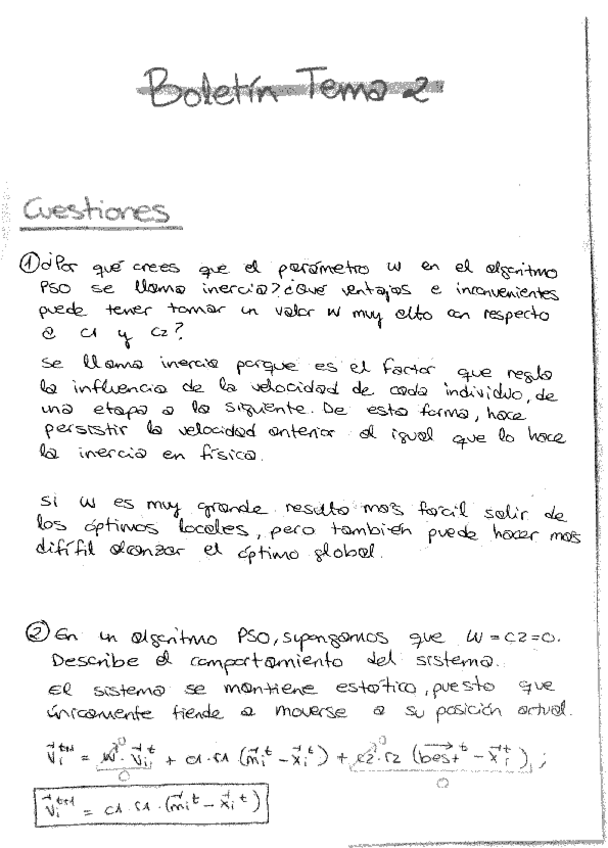 Boletín Tema 2
Cuestiones
① ¿Por qué crees que el parámetro w en el algoritmo
PSO se llama inercia? ¿Qué ventajas e inconvenientes
puede tener tomar un valor w muy alto con respecto
a c1 y c2?
Se llama inercia porque es el factor que regla
la influencia de la velocidad de cada individuo, de
una etapa a la siguiente. De esta forma, hace
persistir la velocidad anterior al igual que lo hace
la inercia en física.
si w es muy grande resulta mas facil salir de
los óptimos locales, pero también puede hacer mas
difífil alcanzar el óptimo global.
② En un algoritmo PSO, supongamos que w = c2 = 0.
Describe el comportamiento del sistema.
El sistema se mantiene estático, puesto que
únicamente tiende a moverse a su posición actual.
v⃗ᵢᵗ⁺¹ = w·v⃗ᵢᵗ + c1·r1 (m⃗ᵢᵗ − x⃗ᵢᵗ) + c2·r2 (best⃗ᵗ − x⃗ᵢᵗ) ;
0 0
v⃗ᵢᵗ⁺¹ = c1·r1·(m⃗ᵢᵗ − x⃗ᵢᵗ)